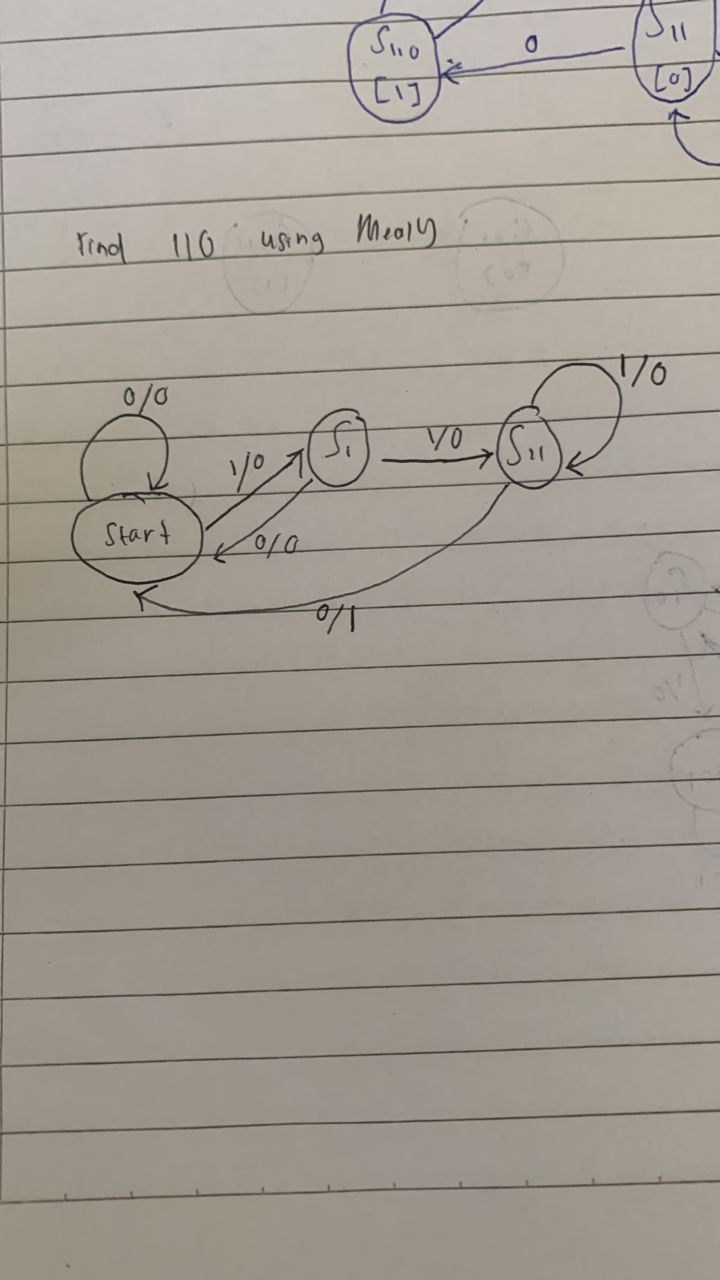 S₁₁₀
[1]
0
S₁₁
[0]
Find 110 using Mealy
0/0
1/0
S₁
1/0
S₁₁
1/0
Start
0/0
0/1